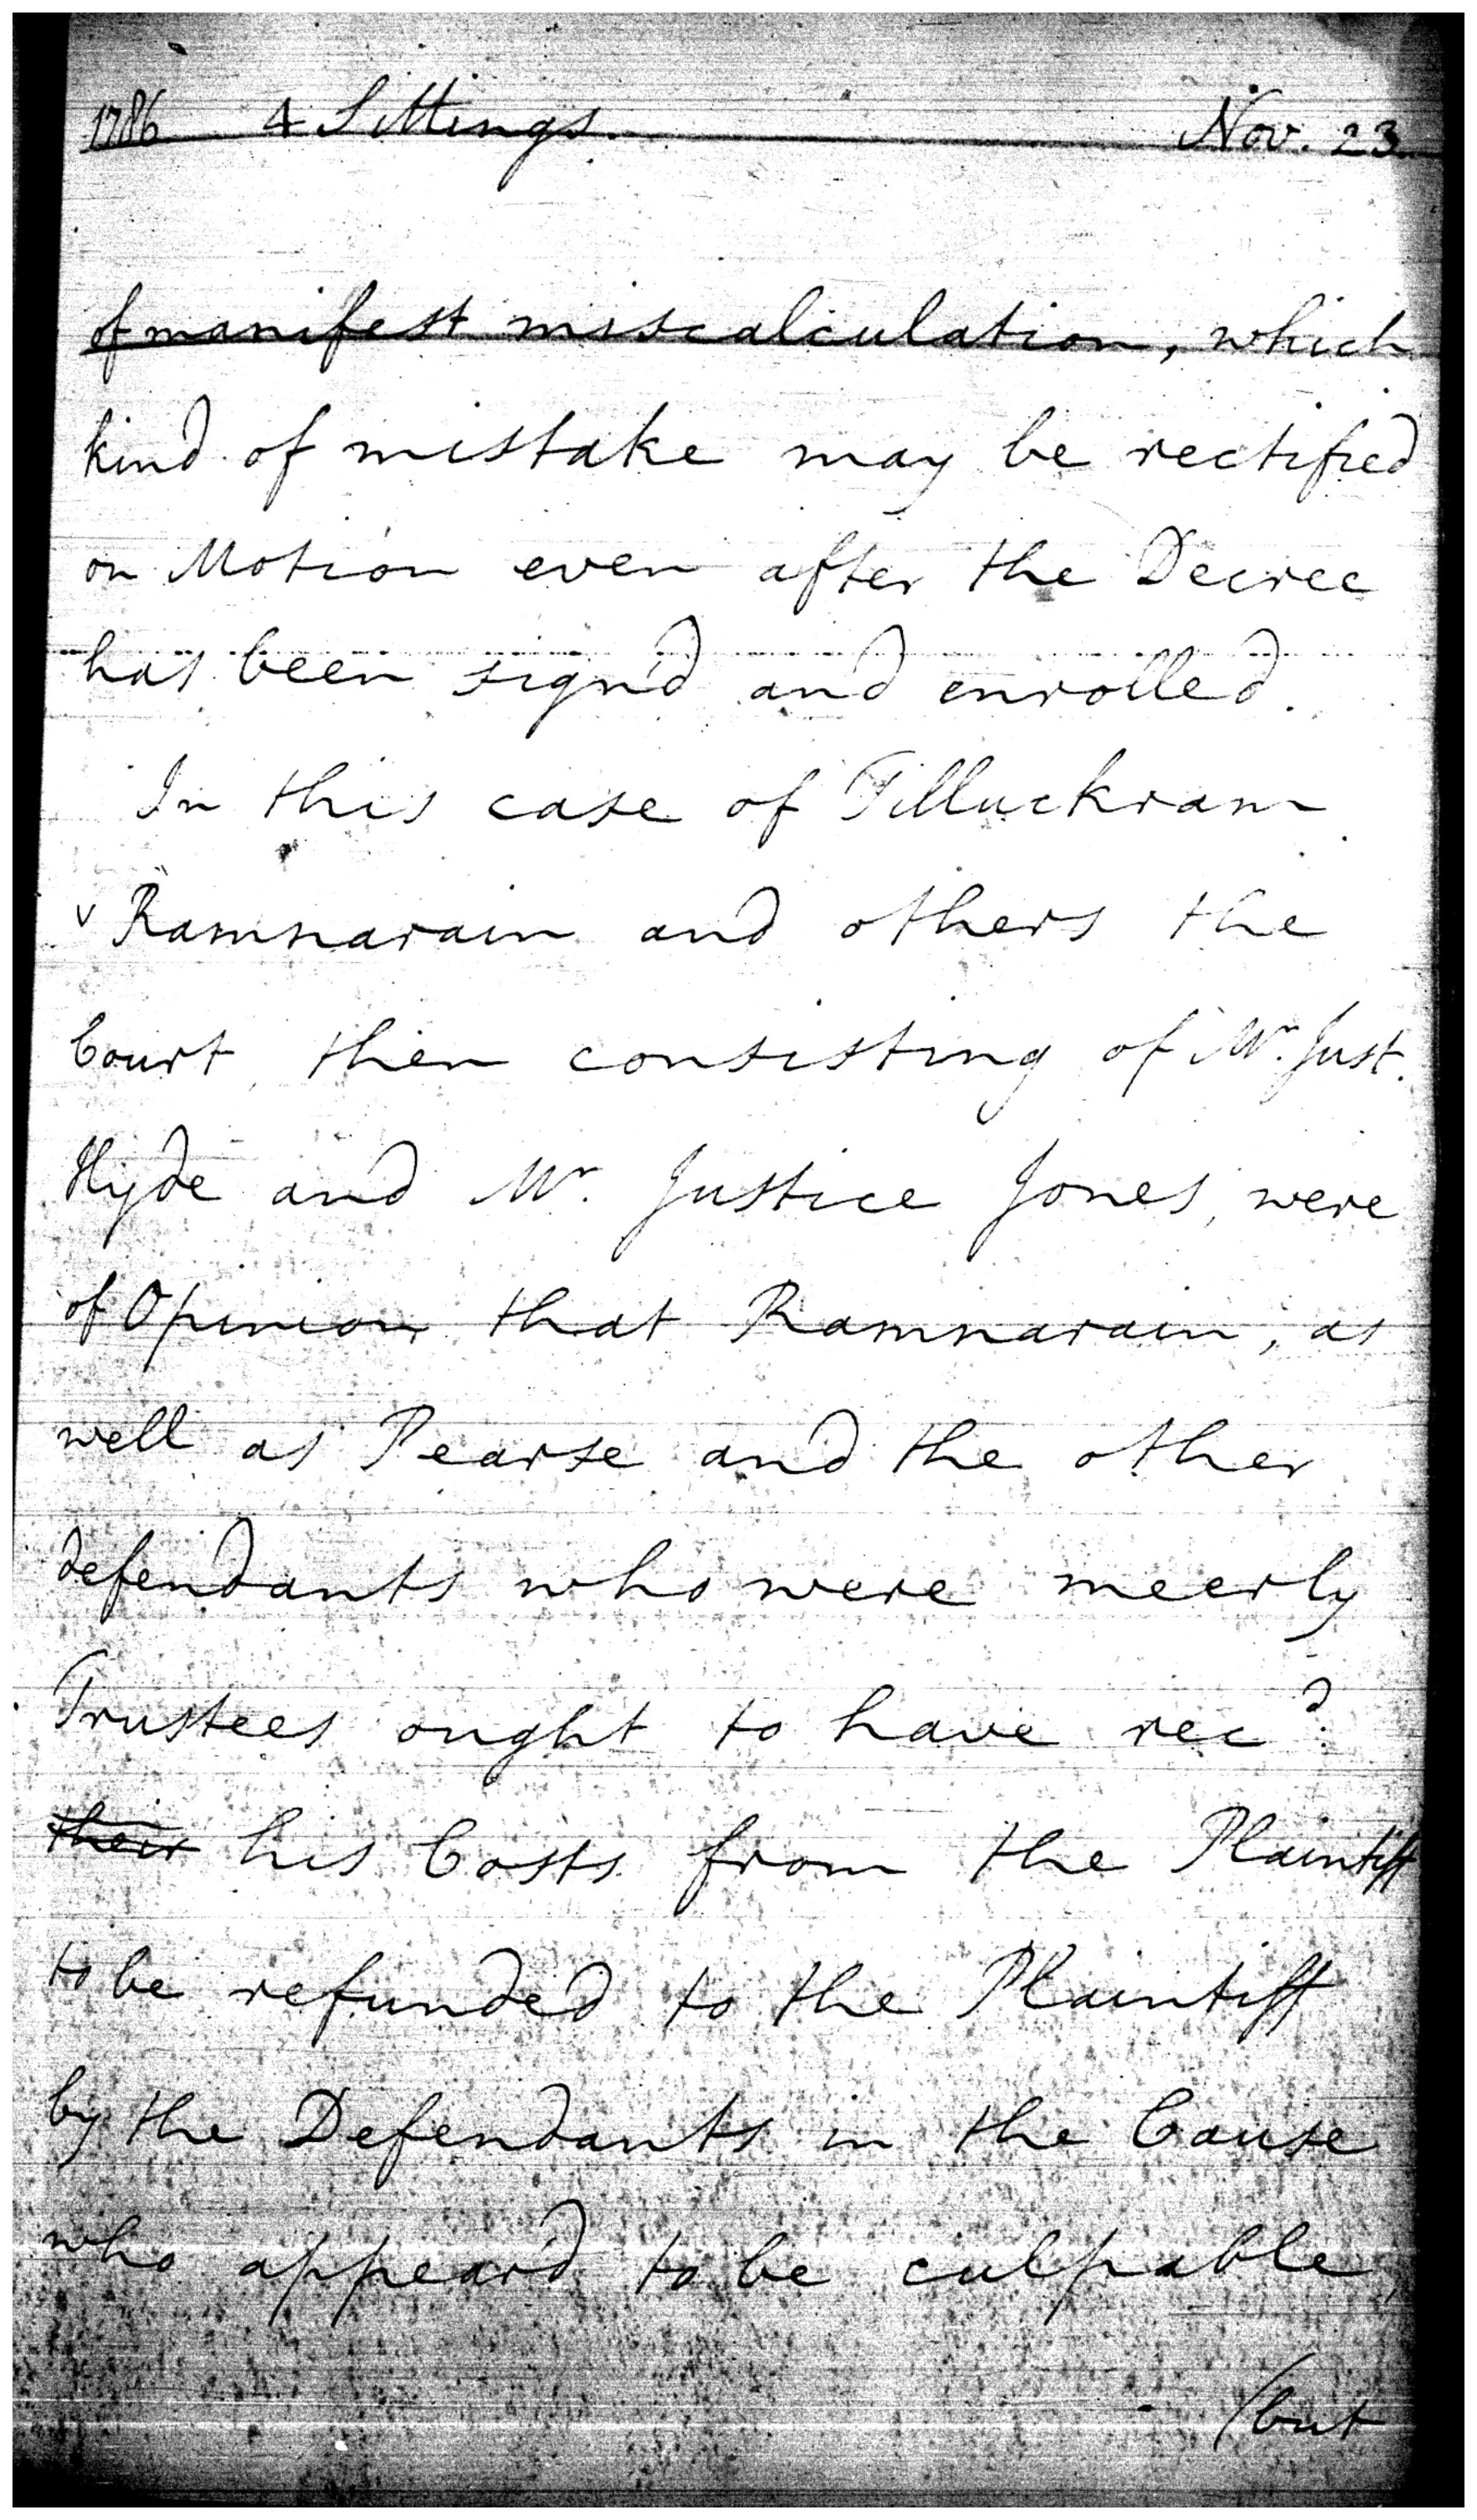 1786 4 Sittings. Nov. 23
of manifest miscalculation, which
kind of mistake may be rectified
on Motion even after the Decree
has been sign'd and enrolled.
In this case of Tilluckram
v Ramnarain and others the
Court, then consisting of Mr. Just.
Hyde and Mr. Justice Jones, were
of Opinion that Ramnarain, as
well as Pearse and the other
defendants who were meerly
Trustees ought to have recd.
their his Costs from the Plaintiff
to be refunded to the Plaintiff
by the Defendants in the Cause
who appear'd to be culpable,
(but